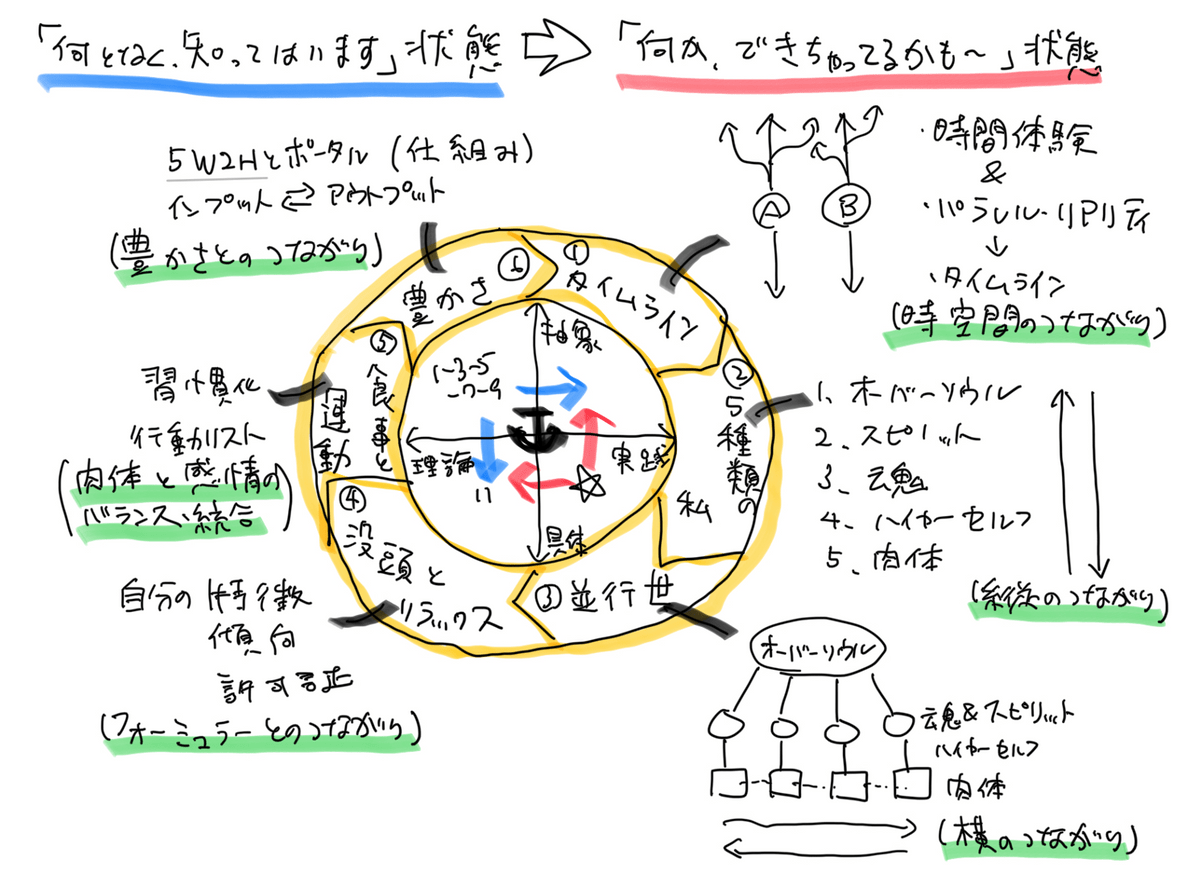 「何となく、知ってはいます」状態
「何か、できちゃってるかも〜」状態
5W2Hとポータル (仕組み)
インプット⇄アウトプット
(豊かさとのつながり)
A
B
・時間体験
&
・パラレル・リアリティ
↓
・タイムライン
(時空間のつながり)
① タイムライン
② 5種類の私
③ 並行世
④ 没頭と
リラックス
⑤ 食事と
運動
⑥ 豊かさ
抽象
1-3-5
-7-9
理論
実践
11
具体
習慣化
行動リスト
(肉体と感情の
バランス、統合)
1、オーバーソウル
2、スピリット
3、魂
4、ハイヤーセルフ
5、肉体
(縦のつながり)
自分の
傾向
許可
(フォーミュラーとのつながり)
オーバーソウル
魂&スピリット
ハイヤーセルフ
肉体
(横のつながり)